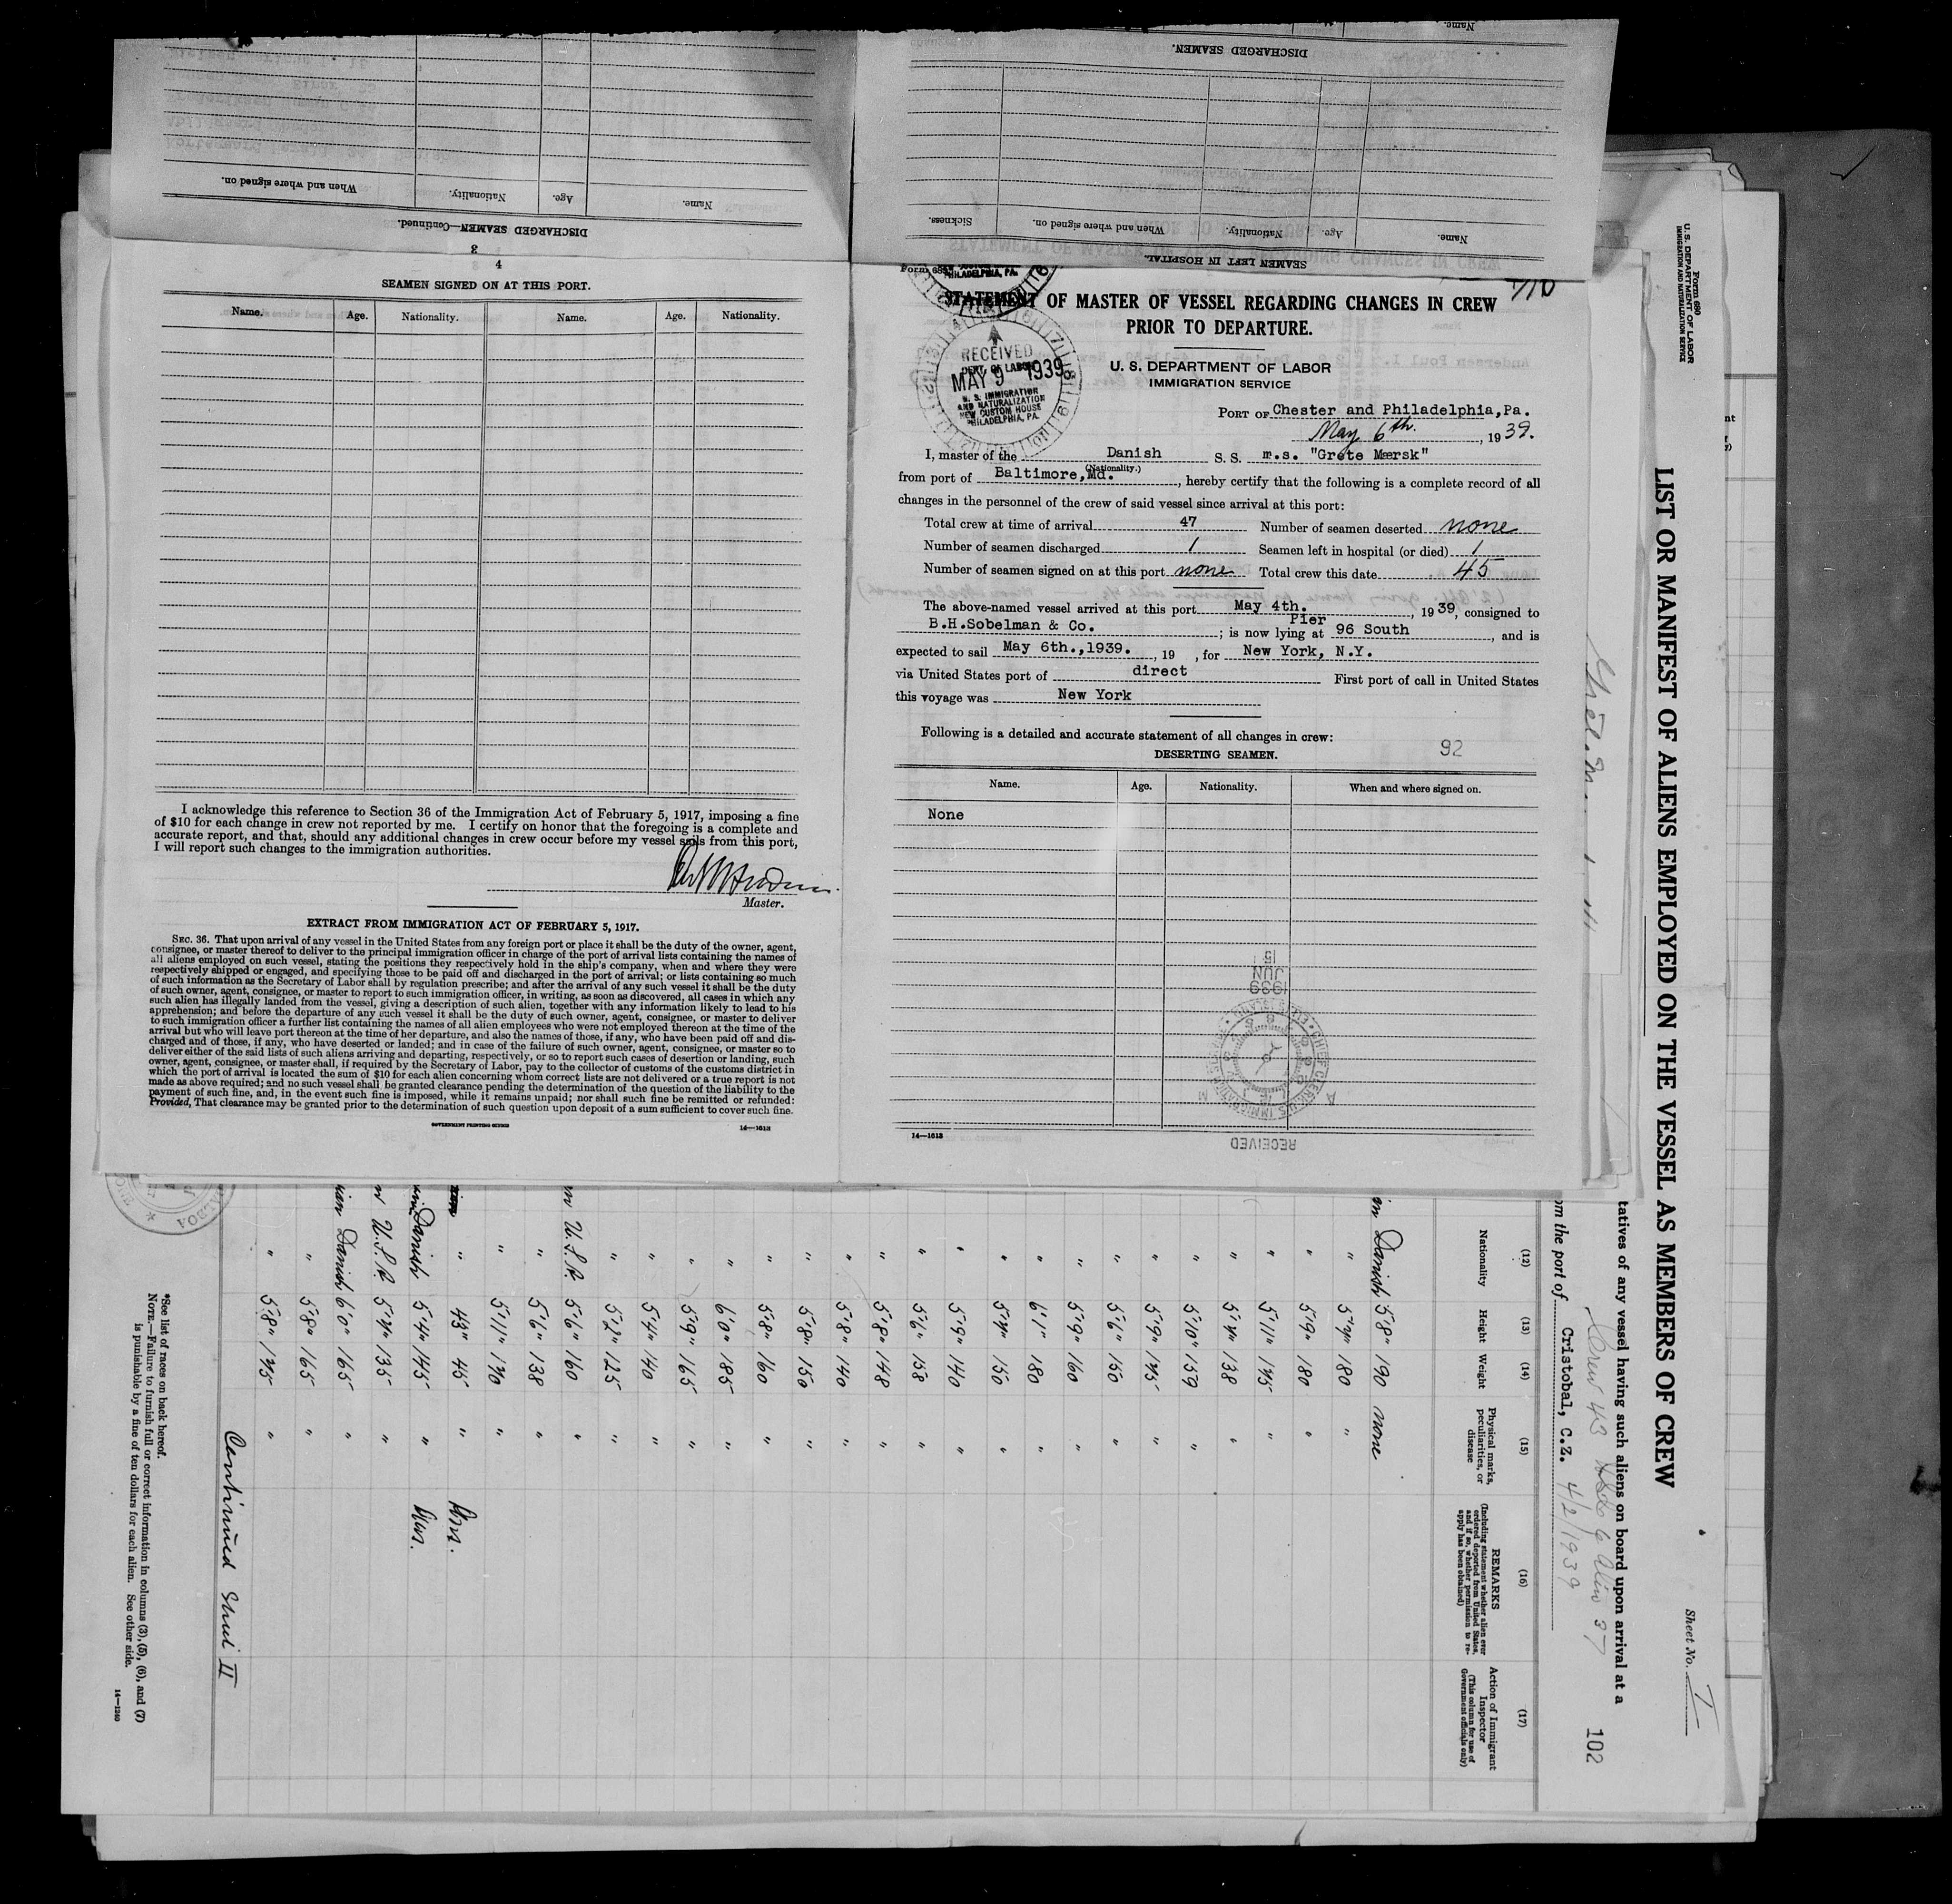 DISCHARGED SEAMEN—Continued.
Name.
Age.
Nationality.
When and where signed on.
3
4
SEAMEN SIGNED ON AT THIS PORT.
Name. Age. Nationality. Name. Age. Nationality.
I acknowledge this reference to Section 36 of the Immigration Act of February 5, 1917, imposing a fine
of $10 for each change in crew not reported by me. I certify on honor that the foregoing is a complete and
accurate report, and that, should any additional changes in crew occur before my vessel sails from this port,
I will report such changes to the immigration authorities.
Master.
EXTRACT FROM IMMIGRATION ACT OF FEBRUARY 5, 1917.
SEC. 36. That upon arrival of any vessel in the United States from any foreign port or place it shall be the duty of the owner, agent,
consignee, or master thereof to deliver to the principal immigration officer in charge of the port of arrival lists containing the names of
all aliens employed on such vessel, stating the positions they respectively hold in the ship's company, when and where they were
respectively shipped or engaged, and specifying those to be paid off and discharged in the port of arrival; or lists containing so much
of such information as the Secretary of Labor shall by regulation prescribe; and after the arrival of any such vessel it shall be the duty
of such owner, agent, consignee, or master to report to such immigration officer, in writing, as soon as discovered, all cases in which any
such alien has illegally landed from the vessel, giving a description of such alien, together with any information likely to lead to his
apprehension; and before the departure of any such vessel it shall be the duty of such owner, agent, consignee, or master to deliver
to such immigration officer a further list containing the names of all alien employees who were not employed thereon at the time of the
arrival but who will leave port thereon at the time of her departure, and also the names of those, if any, who have been paid off and dis-
charged and of those, if any, who have deserted or landed; and in case of the failure of such owner, agent, consignee, or master so to
deliver either of the said lists of such aliens arriving and departing, respectively, or so to report such cases of desertion or landing, such
owner, agent, consignee, or master shall, if required by the Secretary of Labor, pay to the collector of customs of the customs district in
which the port of arrival is located the sum of $10 for each alien concerning whom correct lists are not delivered or a true report is not
made as above required; and no such vessel shall be granted clearance pending the determination of the question of the liability to the
payment of such fine, and, in the event such fine is imposed, while it remains unpaid; nor shall such fine be remitted or refunded:
Provided, That clearance may be granted prior to the determination of such question upon deposit of a sum sufficient to cover such fine.
GOVERNMENT PRINTING OFFICE 14—1613
Name.
DISCHARGED SEAMEN.
SEAMEN LEFT IN HOSPITAL.
Name. Age. Nationality. When and where signed on. Sickness.
STATEMENT OF MASTER OF VESSEL REGARDING CHANGES IN CREW
PRIOR TO DEPARTURE.
PHILADELPHIA, PA.
RECEIVED
DEPT. OF LABOR
MAY 9 1939
U. S. IMMIGRATION
AND NATURALIZATION
NEW CUSTOM HOUSE
PHILADELPHIA, PA.
U. S. DEPARTMENT OF LABOR
IMMIGRATION SERVICE
PORT OF Chester and Philadelphia,Pa.
May 6th. , 1939.
I, master of the Danish S. S. m.s. "Grete Mærsk"
(Nationality.)
from port of Baltimore,Md. , hereby certify that the following is a complete record of all
changes in the personnel of the crew of said vessel since arrival at this port:
Total crew at time of arrival 47 Number of seamen deserted none
Number of seamen discharged 1 Seamen left in hospital (or died) 1
Number of seamen signed on at this port none Total crew this date 45
The above-named vessel arrived at this port May 4th. , 1939, consigned to
B.H.Sobelman & Co. ; is now lying at Pier 96 South , and is
expected to sail May 6th.,1939. , 19 , for New York, N.Y.
via United States port of direct First port of call in United States
this voyage was New York
Following is a detailed and accurate statement of all changes in crew:
92
DESERTING SEAMEN.
Name. Age. Nationality. When and where signed on.
None
1939
JUN
15
RECEIVED
14—1613
Form 680
U. S. DEPARTMENT OF LABOR
IMMIGRATION AND NATURALIZATION SERVICE
LIST OR MANIFEST OF ALIENS EMPLOYED ON THE VESSEL AS MEMBERS OF CREW
Sheet No. I
tatives of any vessel having such aliens on board upon arrival at a
Crew 43 6 Alien 37
om the port of Cristobal, C.Z. 4/2/1939
102
(12) (13) (14) (15) (16) (17)
Nationality Height Weight Physical marks, peculiarities, or disease
REMARKS
(Including statement whether alien ever ordered deported from United States, and if so, whether permission to re-apply has been obtained)
Action of Immigrant Inspector
(This column for use of Government officials only)
Danish 5'8" 190 none
" 5'7" 180 "
" 5'9" 180 "
" 5'11" 175 "
" 5'7" 138 "
" 5'10" 159 "
" 5'9" 175 "
" 5'6" 150 "
" 5'9" 160 "
" 6'1" 180 "
" 5'7" 150 "
" 5'9" 140 "
" 5'6" 158 "
" 5'8" 148 "
" 5'8" 140 "
" 5'8" 150 "
" 5'8" 160 "
" 6'0" 185 "
" 5'9" 165 "
" 5'4" 140 "
" 5'2" 125 "
U.S.A. 5'6" 160 "
" 5'6" 138 "
" 5'11" 170 "
" 4'3" 45 "
Danish 5'4" 145 "
U.S.A. 5'7" 135 "
Danish 6'0" 165 "
" 5'8" 165 "
" 5'8" 175 "
Continued Sheet II
*See list of races on back hereof.
NOTE.—Failure to furnish full or correct information in columns (3), (5), (6), and (7)
is punishable by a fine of ten dollars for each alien. See other side.
14—1240